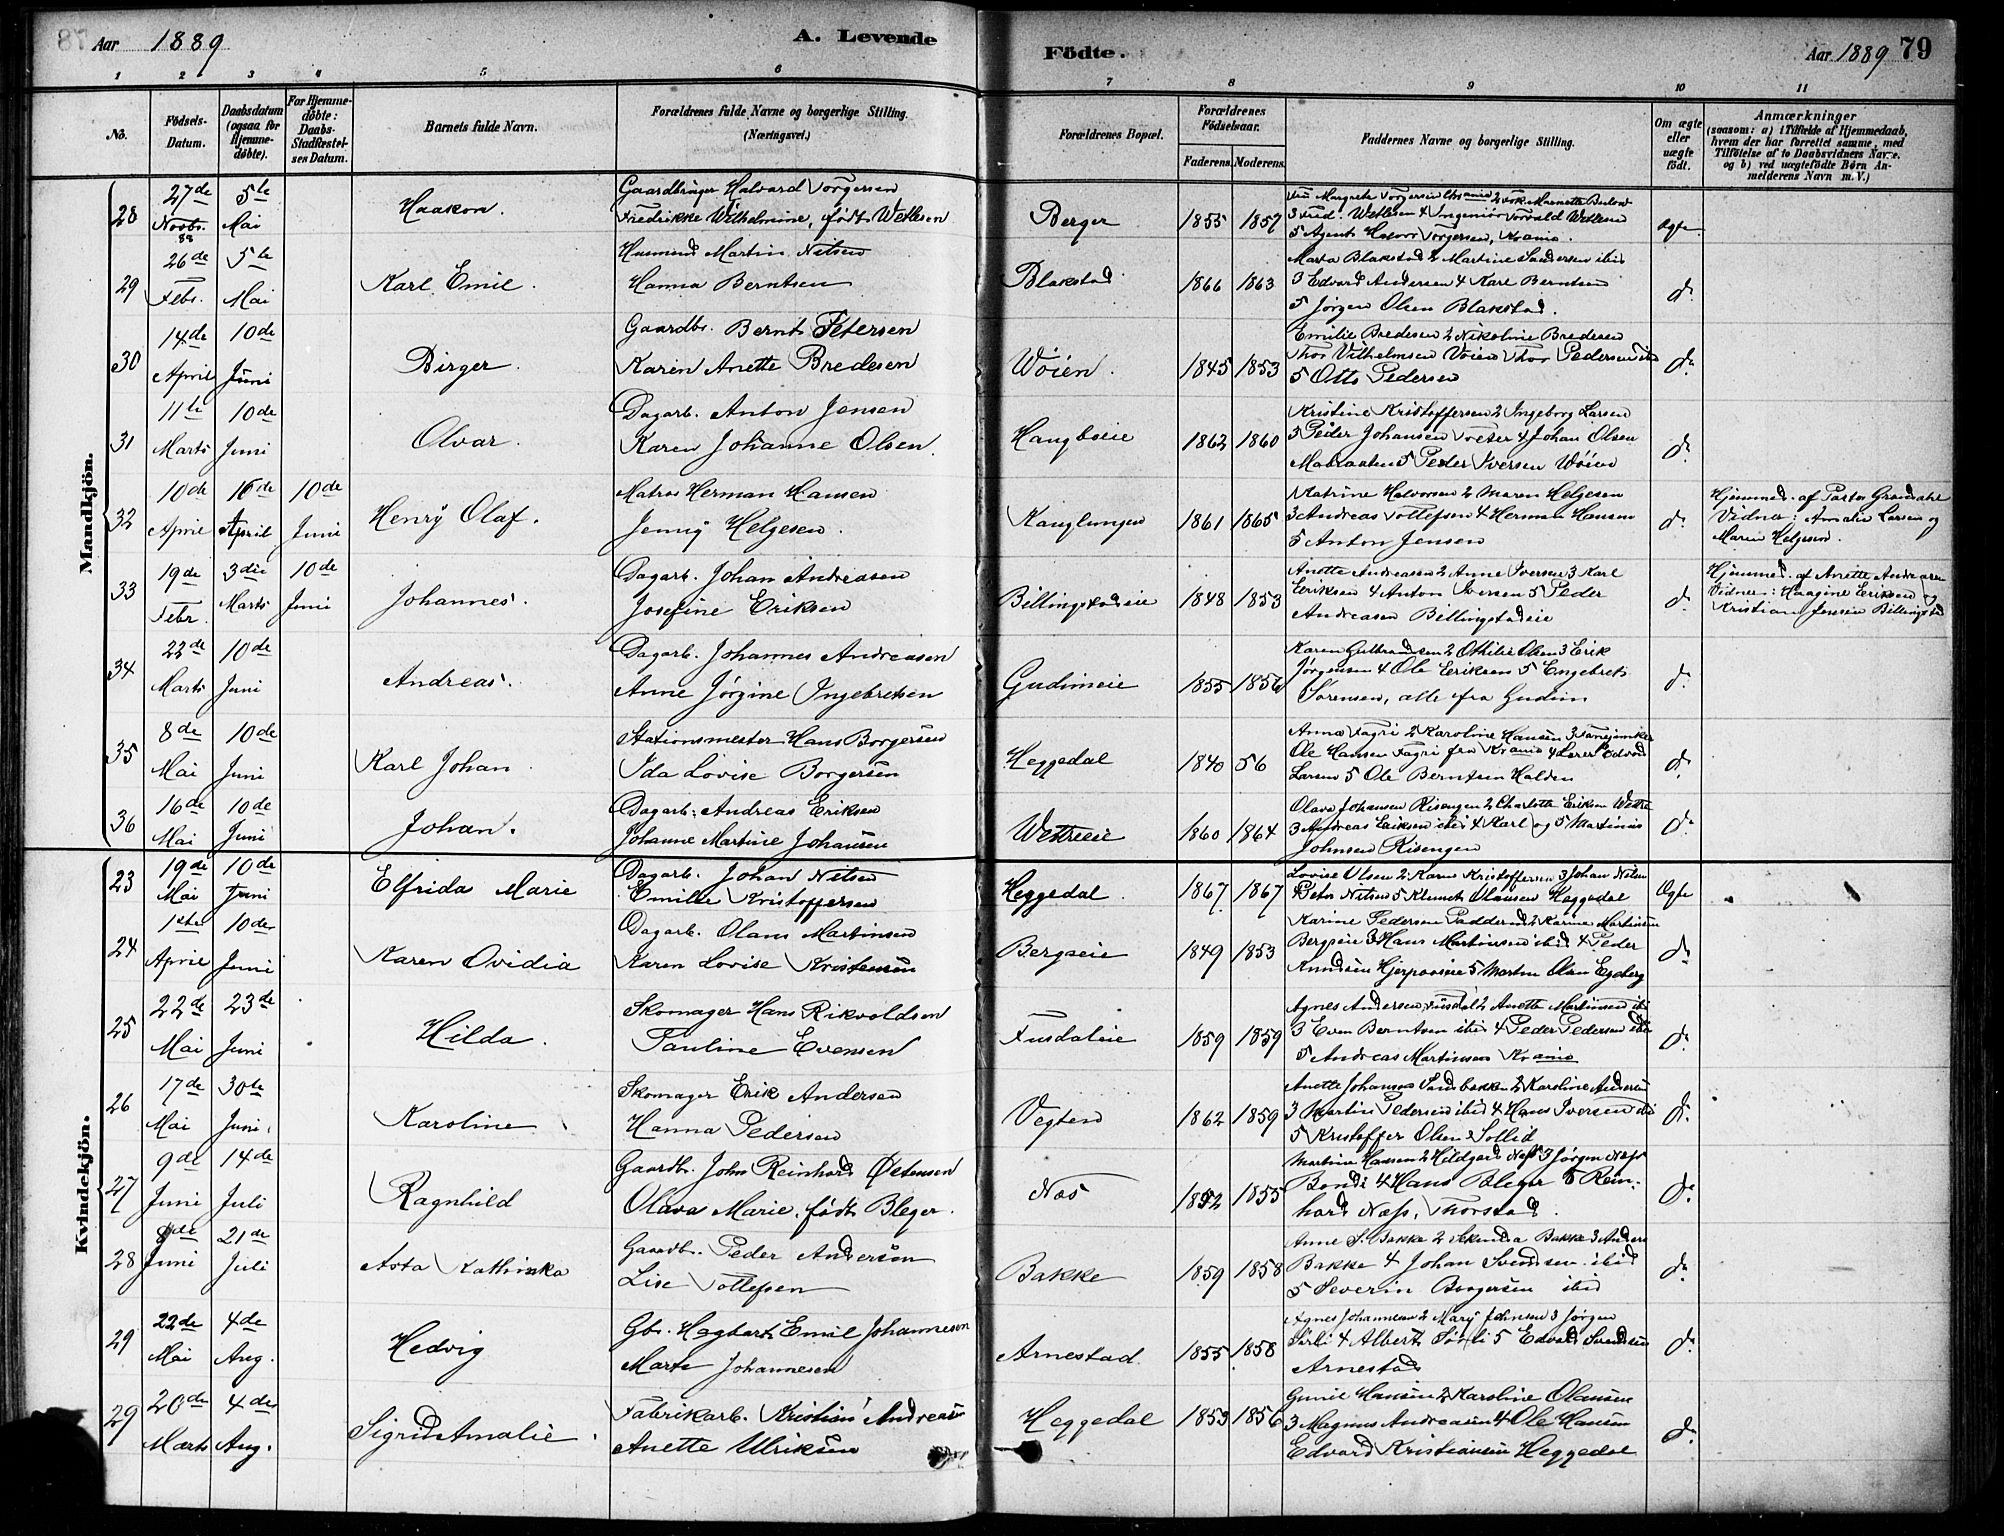 Aar 1889
A. Levende
Födte.
Aar 1889 79
1 2 3 4 5 6 7 8 9 10 11
No.
Födsels-Datum.
Daabsdatum (ogsaa for Hjemme-döbte).
For Hjemme-döbte: Daabs-Stadfæstel-ses Datum.
Barnets fulde Navn.
Forældrenes fulde Navne og borgerlige Stilling. (Næringsvei.)
Forældrenes Bopæl.
Forældrenes Födselsaar.
Faderens. Moderens.
Faddernes Navne og borgerlige Stilling.
Om ægte eller uægte födt.
Anmærkninger
(saasom: a) i Tilfælde af Hjemmedaab, hvem der har forrettet samme, med Tilföielse af to Daabsvidners Navne, og b) ved uægtefödte Börn An-melderens Navn m. V.)
Mandkjön.
28 27de Novbr. 88 5te Mai Haakon.
Gaardbruger Halvard Torgersen
Fredrikke Wilhelmine, født Wettesen
Berger 1855 1857
5 Agent Halvor Torgersen, Krania.
Ægte
29 26de Febr. 5te Mai Karl Emil.
Husmand Martin Nilsen
Hanna Berntsen
Blakstad 1866 1863
Marta Blakstad 2 Martine Andersen ibid
3 Edvard Andersen 4 Karl Berntsen
5 Jørgen Olsen Blakstad.
do
30 14de April 10de Juni Birger.
Gaardbr. Bernt Petersen
Karen Anette Bredesen
Wöien. 1845 1853
Emilie Bredesen 2 Nikoline Bredesen
Thor Vilhelmsen Voien Thor Pedersen ibid
5 Otto Pedersen
do
31 11te Marts 10de Juni Olvar.
Dagarb. Anton Jensen
Karen Johanne Olsen.
Haugboeie 1862 1860
Kristine Kristoffersen 2 Ingeborg Larsen
3 Peder Johansen Tveter 4 Johan Olsen
5 Peder Iversen Wöien
do
32 10de April 16de April 10de Juni Henry Olaf.
Matros Herman Hansen
Jenny Helgesen.
Kauglungen 1861 1865
Katrine Halvorsen 2 Maren Helgesen
3 Andreas Tollefsen 4 Herman Hansen
5 Anton Jensen
do
Hjemmed. af Pastor Grøndahl
Vidner: Amalie Larsen og
Maren Helgesen.
33 19de Febr. 3die Marts 10de Juni Johannes.
Dagarb. Johan Andreasen
Josefine Eriksen
Billingstadeie 1848 1853
Anette Andreasen 2 Anne Iversen 3 Karl
Eriksen 4 Anton Iversen 5 Peder
Andreasen Billingstadeie
do
Hjemmed. af Anette Andreasen
Vidner: Haagine Eriksen og
Kristian Jensen Billingstad
34 22de Marts 10de Juni Andreas.
Dagarb. Johannes Andreasen
Anne Jørgine Ingebretsen
Gudimeie 1855 1856
Karen Gulbrandsen 2 Othilie Olsen 3 Erik
Jørgensen 4 Ole Eriksen 5 Engebret
Sørensen, alle fra Gudim
do
35 8de Mai 10de Juni Karl Johan
Stationsmester Hans Borgersen
Ida Lovise Borgersen
Heggedal 1840 56
Anna Fagri 2 Karoline Hansen
Ole Hansen Fagri fra Krania 4 Lærer Edvard
Larsen 5 Ole Berntsen Halden
do
36 16de Mai 10de Juni Johan.
Dagarb. Andreas Eriksen
Johanne Martine Johansen
Wettreeie 1860 1864
Olava Johansen Risengen 2 Charlotte Eriksen Wettre
3 Andreas Eriksen ibid 4 Karl og 5 Martinius
Johnsen Risengen
do
Kvindekjön.
23 19de Mai 10de Juni Elfrida Marie
Dagarb. Johan Nilsen
Emilie Kristoffersen
Heggedal 1867 1867
Lovise Olsen 2 Karen Kristoffersen 3 Johan Nilsen
Peter Nilsen 5 Klemet Olausen Heggedal
Ægte
24 1ste April 10de Juni Karen Ovidia
Dagarb. Olaus Martinsen
Karen Lovise Kristensen
Bergseie 1849 1853
Karine Pedersen Padderud 2 Karine Martinsen
Bergseie 3 Hans Martinsen ibid 4 Peder
Knudsen 5 Martin Olsen Egeberg
do
25 22de Mai 23de Juni Hilda.
Skomager Hans Rikvoldsen
Pauline Evensen
Fusdaleie 1859 1859
Agnes Andersen Fusdal 2 Anette Martinsen ibid
3 Even Berntsen ibid 4 Peder Pedersen ibid
5 Andreas Martinsen Krania
do
26 17de Mai 30te Juni. Karoline
Skomager Erik Andersen
Hanna Pedersen
Vegten 1862 1859
Anette Johansen Sandbakken 2 Karoline Andersen
3 Martin Pedersen ibid 4 Hans Iversen ibid
5 Kristoffer Olsen Sollid
do
27 9de Juni 14de Juli Ragnhild
Gaardbr. John Reinhard Østensen
Olava Marie, født Bleger.
Næs 1852 1855
Martine Hansen 2 Hildgard Næss 3 Jørgen Næss
Bondi 4 Hans Bleger 5 Rein-
hard Næss, Thorstad.
do
28 8de Juni 21de Juli Asta Kathinka
Gaardb. Peder Andersen
Lise Tollefsen
Bakke 1859 1858
Anne S. Bakke 2 Bakke 3 Anders
Bakke 4 Johan Svendsen ibid
5 Severin Borgersen ibid
do
29 22de Mai 4de Aug. Hedvig
Gbr. Hagbart Emil Johannesen
Marte Johannesen
Arnestad. 1855 1858
Agnes Johannesen 2 Mary Johnsen 3 Jørgen
Sørli 4 Albert Sørli 5 Edvard Svendsen
Arnestad
do
29 20de Marts 4de Aug. Sigrid Amalie.
Fabrikarb. Kristian Andreasen
Anette Ulriksen
Heggedal 1853 1856
Gunil Hansen 2 Karoline Olausen
3 Magnus Andreasen 4 Ole Hansen
Edvard Kristiansen Heggedal
do